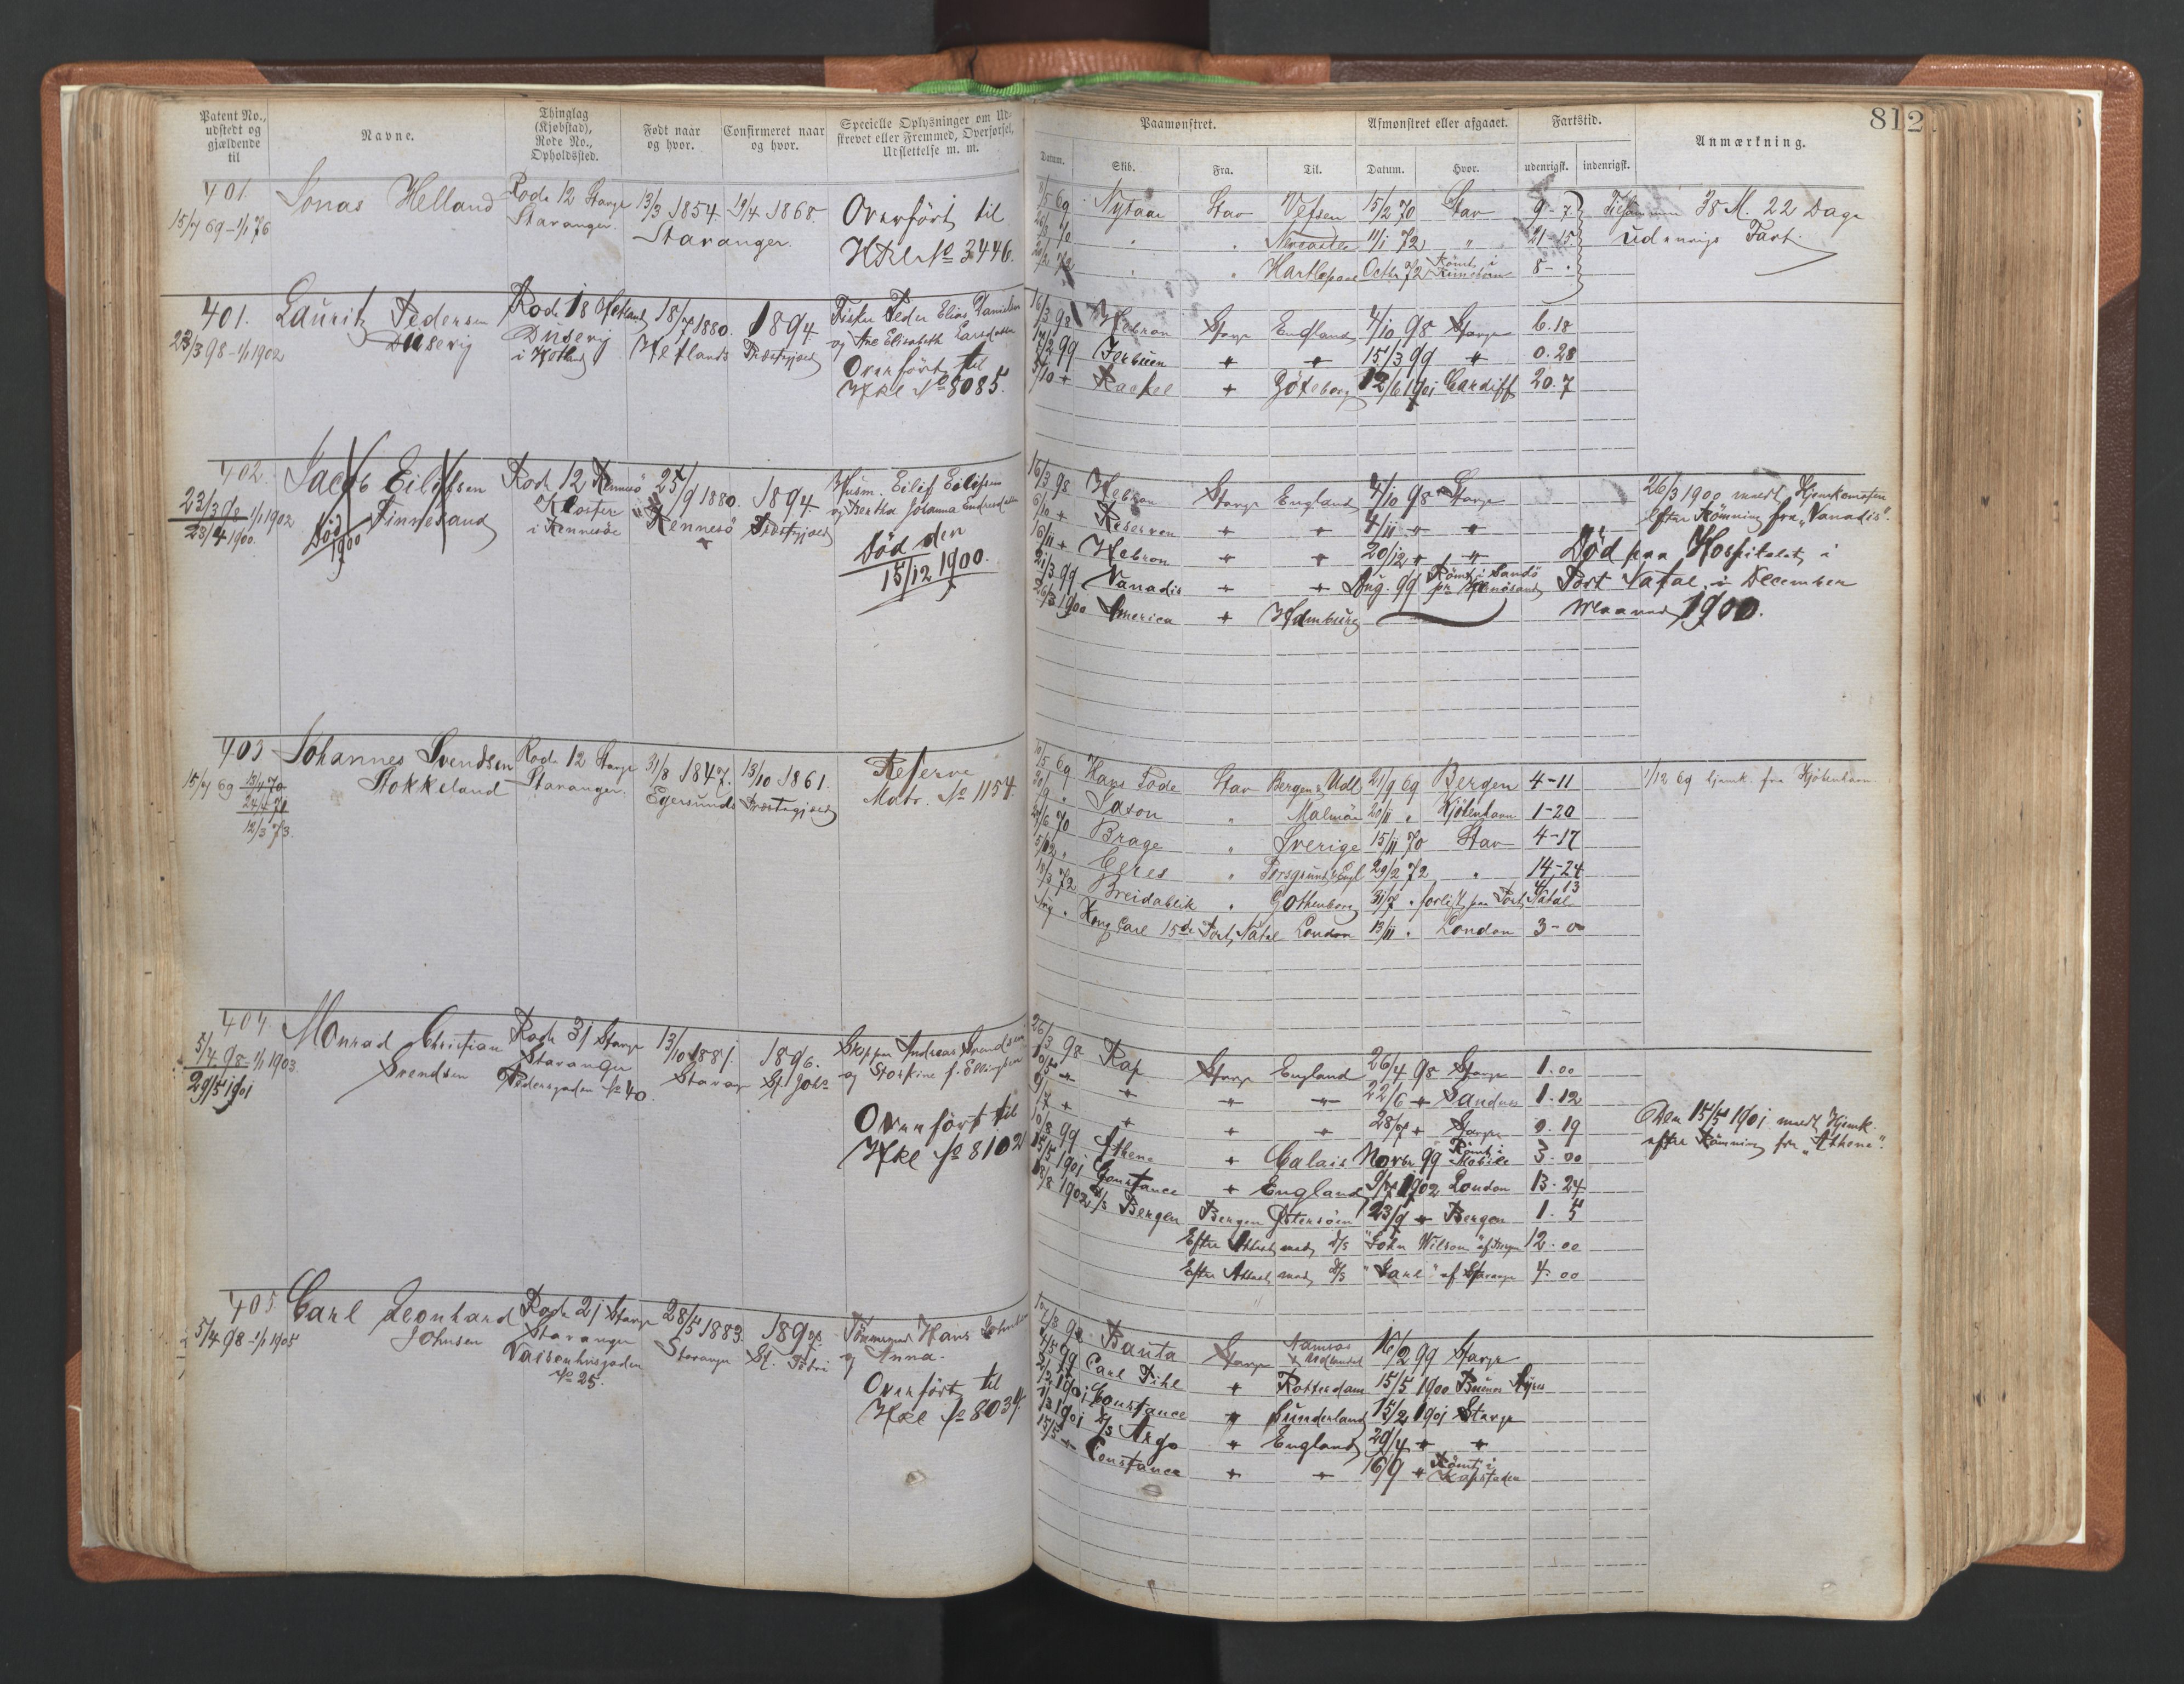 812
Patent No., udstedt og gjældende til
Navne.
Thinglag (Kjøbstad), Rode No., Opholdssted.
Født naar og hvor.
Confirmeret naar og hvor.
Specielle Oplysninger om Udstrevet eller Fremmed, Overførsel, Udslettelse m. m.
Paamønstret.
Afmønstret eller afgaaet.
Fartstid.
Anmærkning.
Datum. Skib. Fra. Til. Datum. Hvor. udenrigsk. indenrigsk.
401. Jonas Helland Rode 12 Stavgr 13/3 1854. 19/4 1868. Overført til
15/4 69 - 1/1 76 Stavanger. Stavanger. Hkl. No 3446.
Nysaar Stav Vefsen 15/2 70 Stav 9-7 38 M. 22 Dage
" Newcastle 11/1 72 " 21-15 udenrigs Fart.
" Hartlepool Octbr 72 Rømt i 8-"
401. Lauritz Pedersen Rode 18 Hetland 18/7 1880. 1894 Fisker Peder Elias Danielsen
23/3 98 - 1/1 1902 Dusevig Dusevig Hetlands Præstegjæld og Ane Elisabeth Larsdatter
i Hetland Overført til
Hkl No 8085.
16/3 98 Hebron Stavgr England 4/10 98 Stavgr 6.18
17/2 99 " " 15/3 99 " 0.28
5/10 " Rackel " Göteborg 12/6 1901 Cardiff 20.7
402. Jacob Eilifsen Rode 12 Rennesø 25/9 1880. 1894 Husm. Eilif Eilifsen
23/3 98 1/1 1902 Finnesand Kloster Rennesø Præstegjæld og Berthe Johanna Endresdatter
23/4 1900. Død 1900 i Rennesøe Død den
15/12 1900.
16/3 98 Hebron Stavgr England 4/10 98 Stavgr 26/3 1900 meldt Hjemkomsten
6/10 " Reserven " " 4/11 " " efter Rømning fra "Vanadis".
16/11 " Hebron " " 20/12 " " Død paa Hospitalet i
21/3 99 Vanadis " " Aug. 99 Rømt i Sandö Port Natal i December
pr Hernösand
26/3 1900 America " Hamburg Maaned 1900.
403 Johannes Svendsen Rode 12 Stavgr 31/8 1847. 13/10 1861. Reserve
15/4 69 13/4 70 Stokkeland Stavanger. Egersunds Præstegjæld Matr. No 1154.
24/4 71
12/3 73.
10/5 69 Hans Tode Stav Bergen & Udl 21/9 69 Bergen 4-11 1/12 69 hjemk. fra Kjøbenhavn
30/9 " Saxon " Malmöe 20/11 " Kjöbenhavn 1-20
27/6 70 Brage " Sverige 15/11 70 Stav 4-17
5/12 " Ceres " Porsgrund & Engl 29/2 72 " 14-24
18/3 72 Breidablik " Gothenborg 31/7 " forlist paa Port Natal 4 13
Aug " Kong Carl 15de Port Natal London 13/11 " London 3-0
404. Monrad Christian Rode 31 Stavgr 13/10 1881. 1896. Skipper Andreas Svendsen
5/4 98 - 1/1 1903. Svendsen Stavanger Stavgr St. Johs og Serine f. Ellingsen
29/5 1901 Pedersgaden No 40. Overført til
Hkl No 8102
26/3 98 Rap Stavgr England 26/4 98 Stavgr 1.00
10/5 " " " " 22/6 " Sandnes 1.12
9/7 " " " " 28/7 " Stavgr 0.19 Den 15/5 1901 meldt Hjemk.
10/8 99 Athene " Calais Novbr 99 Rømt i Mobile 3.00 efter Rømning fra "Athene".
15/5 1901 Constance " England 9/7 1902 London 13.24
18/8 1902 D/S Bergen Bergen Østersøen 23/9 " Bergen 1.5
Efter Attest med D/S "John Wilson" af Bergen 12.00
Efter Attest med D/S "Jarl" af Stavanger 4.00
405. Carl Leonhard Rode 21 Stavgr 28/5 1883. 1898. Tømmermand Hans Johnsen
5/4 98 - 1/1 1905 Johnsen Stavanger Stavanger St. Petri og Anna.
Vaisenhusgaden Overført til
No 25. Hkl No 8034.
Bauta Stavgr Namsos & Udlandet 16/2 99 Stavgr
4/5 99 Carl Pihl " Rotterdam 15/5 1900 Buenos Ayres
Constance " Sunderland 15/2 1901 Stavgr
D/S Argo " England 29/4 " "
15/5 " Constance " " 16/9 " Rømt i Kapstaden